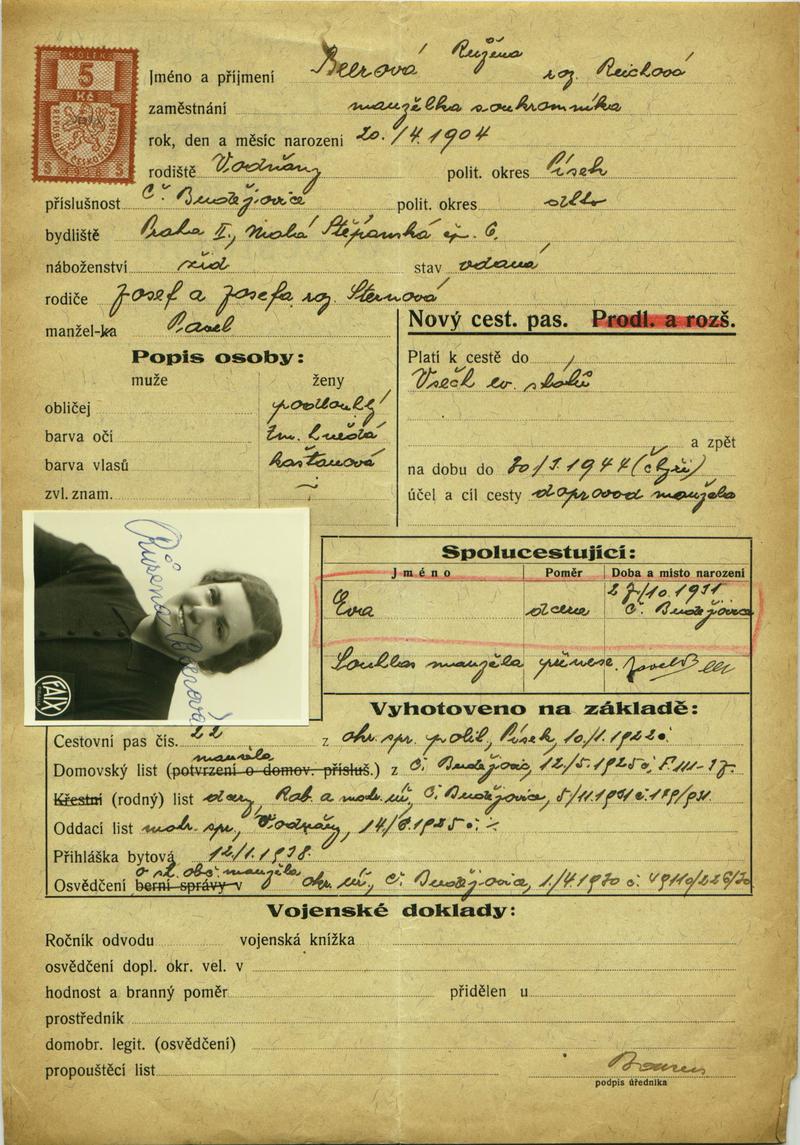 KOLEK
5
Kč
REPUBLIKA ČESKOSLOVENSKÁ
5 1938 5
Jméno a příjmení Beerová Růžena roz. Reichová
zaměstnání manželka soukromníka
rok, den a měsíc narození 20./4. 1904
rodiště Vodňany polit. okres Písek
příslušnost Č. Budějovice polit. okres dtto
bydliště Praha II., Malá Štěpánská čp. 6.
náboženství žid stav vdaná
rodiče Josef a Josefa roz. Sternová
manžel-ka Pavel
Nový cest. pas. Prodl. a rozš.
Popis osoby:
muže ženy
obličej podlouhlý
barva očí tm. hnědá
barva vlasů kaštanová
zvl. znam.
Platí k cestě do
Všech ev. států
a zpět
na dobu do 30/3. 1944 (čtyři)
účel a cíl cesty doprovod manžela
Růžena Beerová
FALX
Spolucestující:
Jméno Poměr Doba a místo narození
Eva dcera 27/10. 1931 Č. Budějovice
Souhlas manžela přinese.
Vyhotoveno na základě:
Cestovní pas čís. 22 z okr. spr. polit., Písek, 10/1. 1922
manžela
Domovský list (potvrzení o domov. přísluš.) z Č. Budějovic, 12/5. 1925 č. F. III-27.
Křestní (rodný) list dcery, Rab. a matr. úř., Č. Budějovice, 5/11. 1931 č. 189/931.
Oddací list matr. spr., Vodňany, 14/6. 1925 č. ⁒
Přihláška bytová 12/1. 1938.
o st. obč. manžela
Osvědčení berní správy v okr. úř., Č. Budějovice, 1./4. 1930 č. 49110/226/30
Vojenské doklady:
Ročník odvodu vojenská knížka
osvědčení dopl. okr. vel. v
hodnost a branný poměr přidělen u
prostředník
domobr. legit. (osvědčení)
propouštěcí list
podpis úředníka